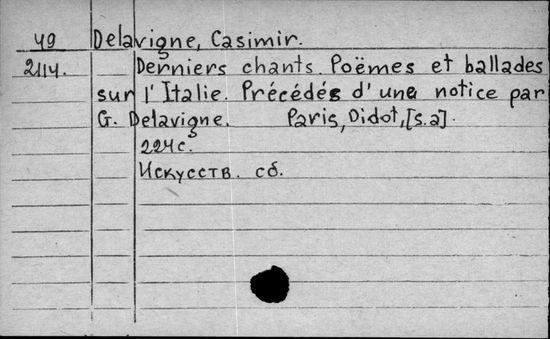 49 Delavigne, Casimir.
2114. Derniers chants. Poëmes et ballades
sur l'Italie. Précédés d'une notice par
G. Delavigne. Paris, Didot, [s.a].
224с.
Искусств. сб.